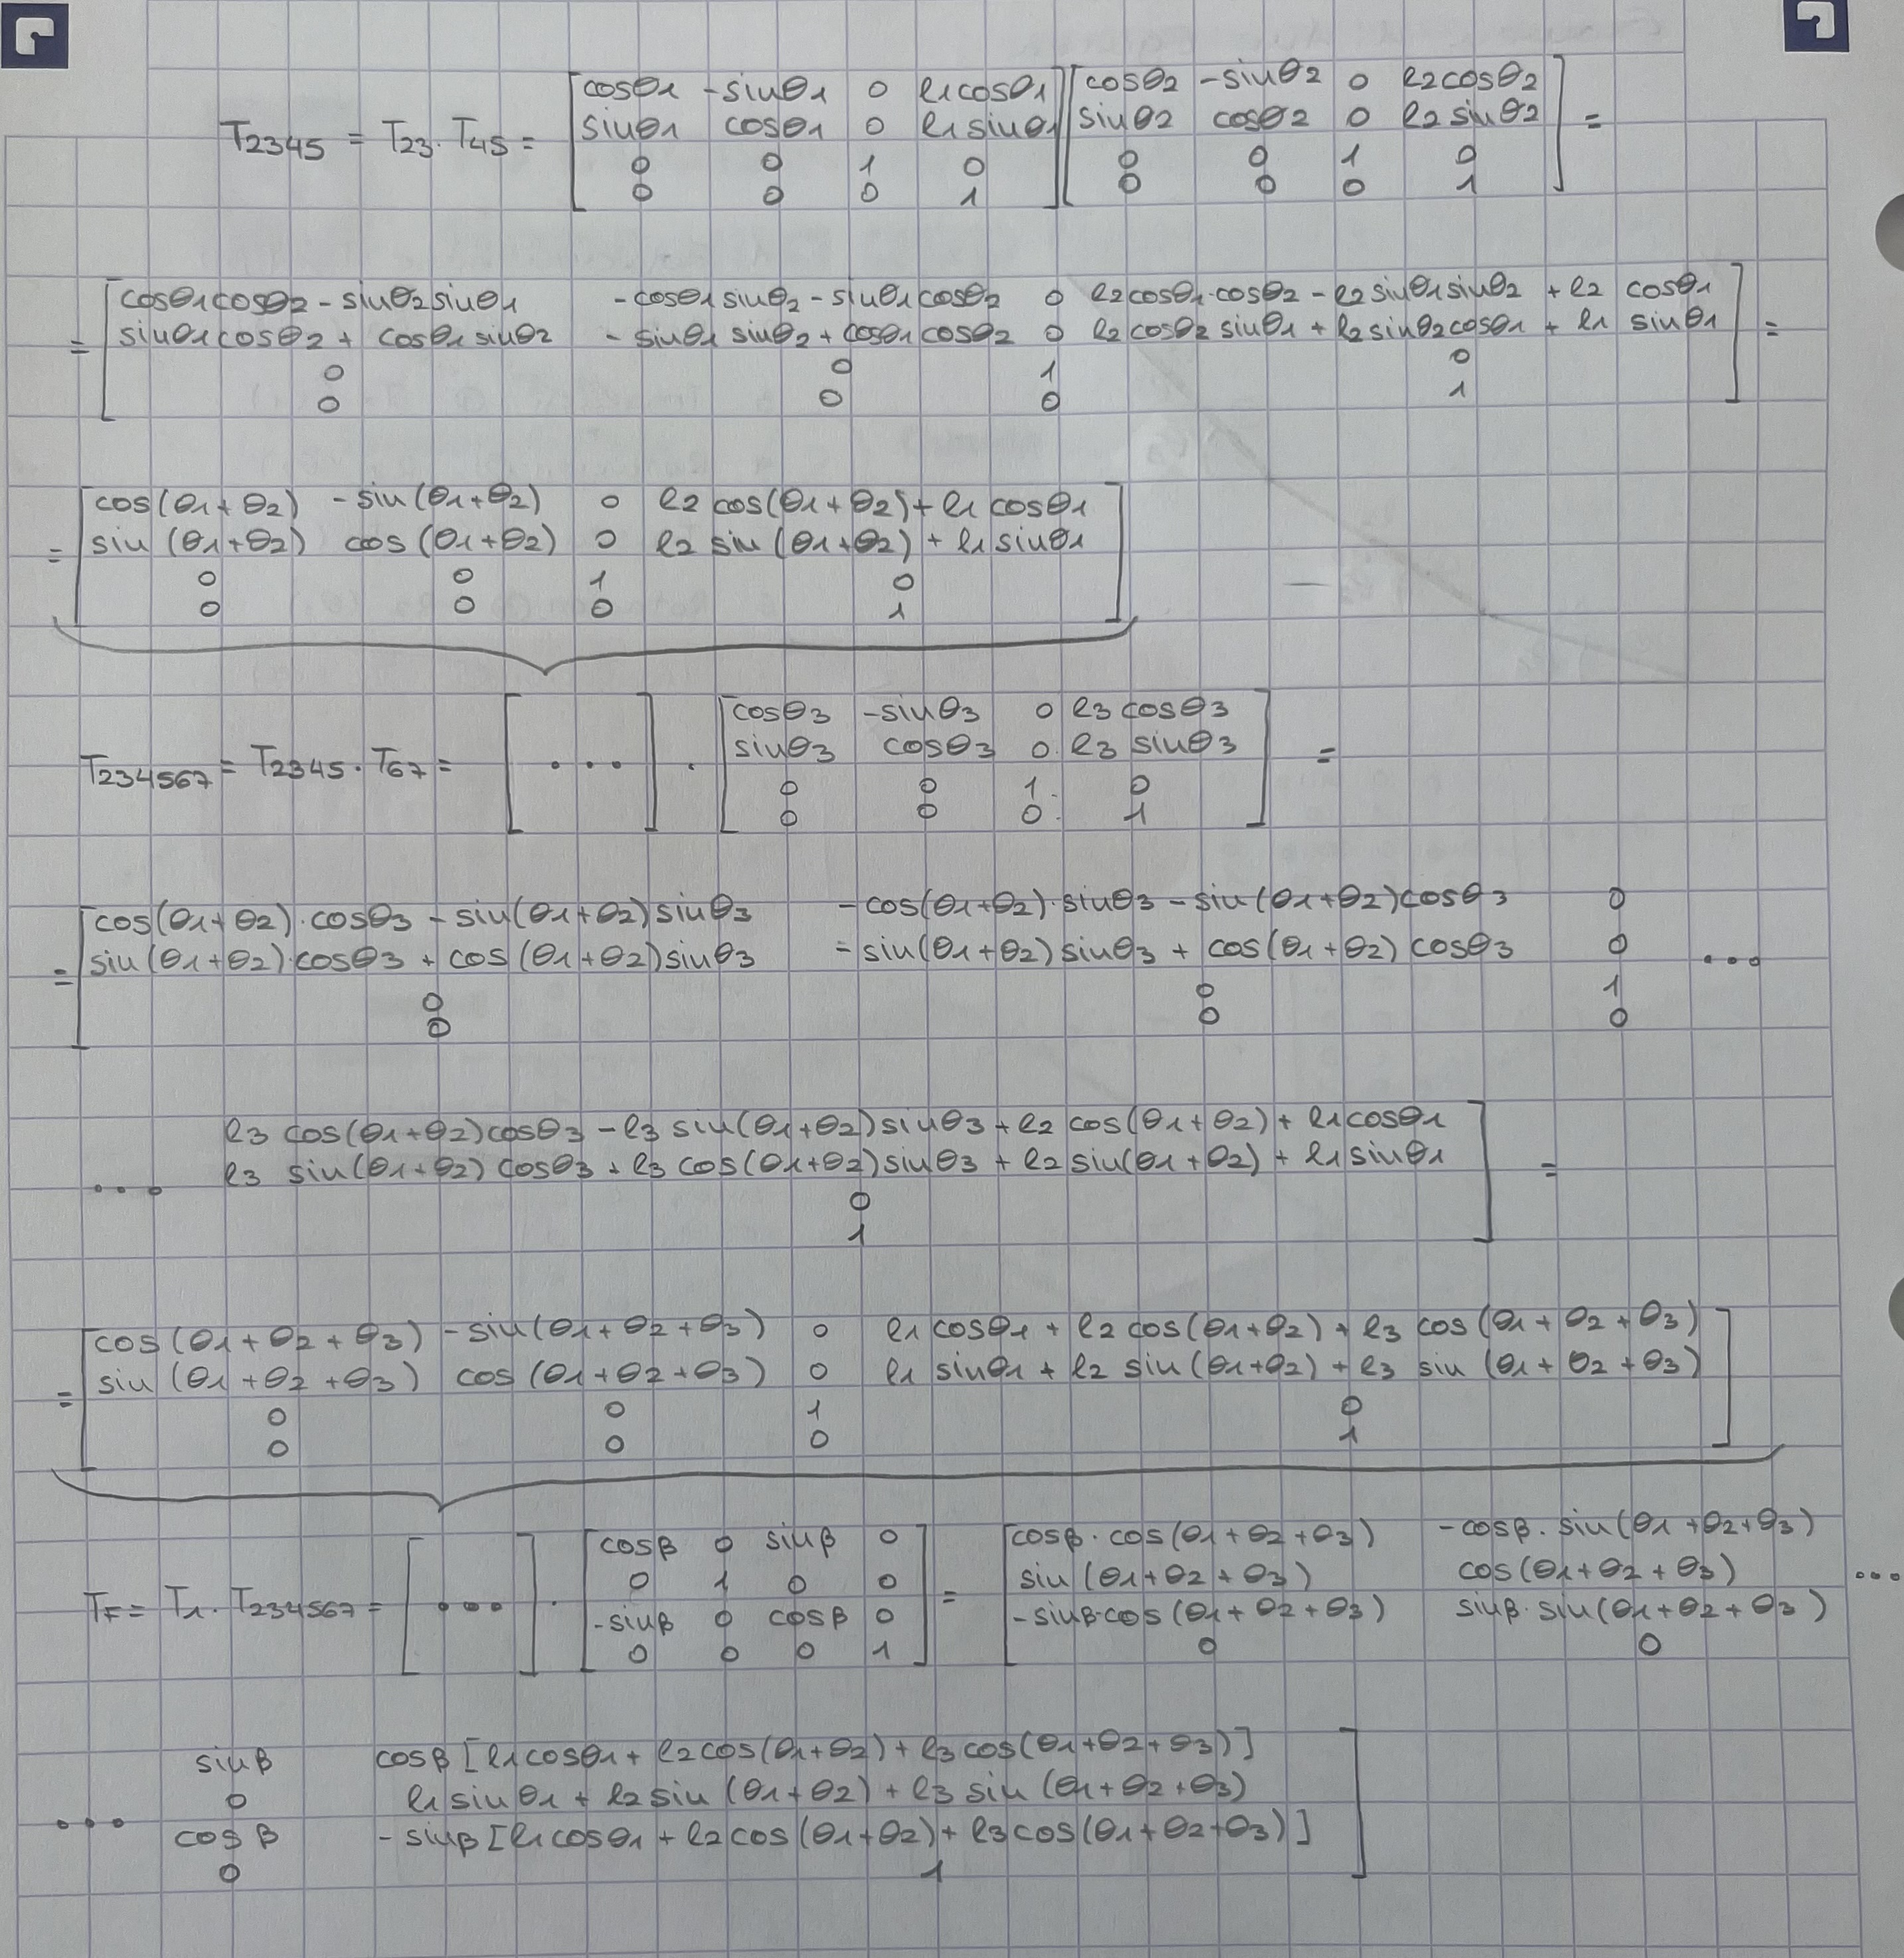 T2345 = T23 · T45 = [cosθ1 -sinθ1 0 l1cosθ1] [cosθ2 -sinθ2 0 l2cosθ2]
[sinθ1 cosθ1 0 l1sinθ1] [sinθ2 cosθ2 0 l2sinθ2] =
0 0 1 0 0 0 1 0
0 0 0 1 0 0 0 1
cosθ1cosθ2 - sinθ2sinθ1 -cosθ1sinθ2 - sinθ1cosθ2 0 l2cosθ1·cosθ2 - l2sinθ1sinθ2 + l2 cosθ1
= sinθ1cosθ2 + cosθ1sinθ2 -sinθ1sinθ2 + cosθ1cosθ2 0 l2cosθ2sinθ1 + l2sinθ2cosθ1 + l1 sinθ1 =
0 0 1 0
0 0 0 1
cos(θ1+θ2) -sin(θ1+θ2) 0 l2cos(θ1+θ2)+l1cosθ1
= sin(θ1+θ2) cos(θ1+θ2) 0 l2sin(θ1+θ2)+l1sinθ1
0 0 1 0
0 0 0 1
cosθ3 -sinθ3 0 l3cosθ3
T234567 = T2345 · T67 = [...] · sinθ3 cosθ3 0 l3sinθ3 =
0 0 1 0
0 0 0 1
cos(θ1+θ2)·cosθ3 - sin(θ1+θ2)sinθ3 -cos(θ1+θ2)·sinθ3 - sin(θ1+θ2)cosθ3 0
= sin(θ1+θ2)·cosθ3 + cos(θ1+θ2)sinθ3 -sin(θ1+θ2)sinθ3 + cos(θ1+θ2)cosθ3 0 ...
0 0 1
0 0 0
l3cos(θ1+θ2)cosθ3 - l3sin(θ1+θ2)sinθ3 + l2cos(θ1+θ2) + l1cosθ1
... l3sin(θ1+θ2)cosθ3 + l3cos(θ1+θ2)sinθ3 + l2sin(θ1+θ2) + l1sinθ1 =
0
1
cos(θ1+θ2+θ3) -sin(θ1+θ2+θ3) 0 l1cosθ1 + l2cos(θ1+θ2) + l3cos(θ1+θ2+θ3)
= sin(θ1+θ2+θ3) cos(θ1+θ2+θ3) 0 l1sinθ1 + l2sin(θ1+θ2) + l3sin(θ1+θ2+θ3)
0 0 1 0
0 0 0 1
cosβ 0 sinβ 0 cosβ·cos(θ1+θ2+θ3) -cosβ·sin(θ1+θ2+θ3)
0 1 0 0 sin(θ1+θ2+θ3) cos(θ1+θ2+θ3)
TF = T1 · T234567 = [...] · -sinβ 0 cosβ 0 = -sinβ·cos(θ1+θ2+θ3) sinβ·sin(θ1+θ2+θ3) ...
0 0 0 1 0 0
sinβ cosβ[l1cosθ1 + l2cos(θ1+θ2) + l3cos(θ1+θ2+θ3)]
0 l1sinθ1 + l2sin(θ1+θ2) + l3sin(θ1+θ2+θ3)
... cosβ -sinβ[l1cosθ1 + l2cos(θ1+θ2) + l3cos(θ1+θ2+θ3)]
0 1